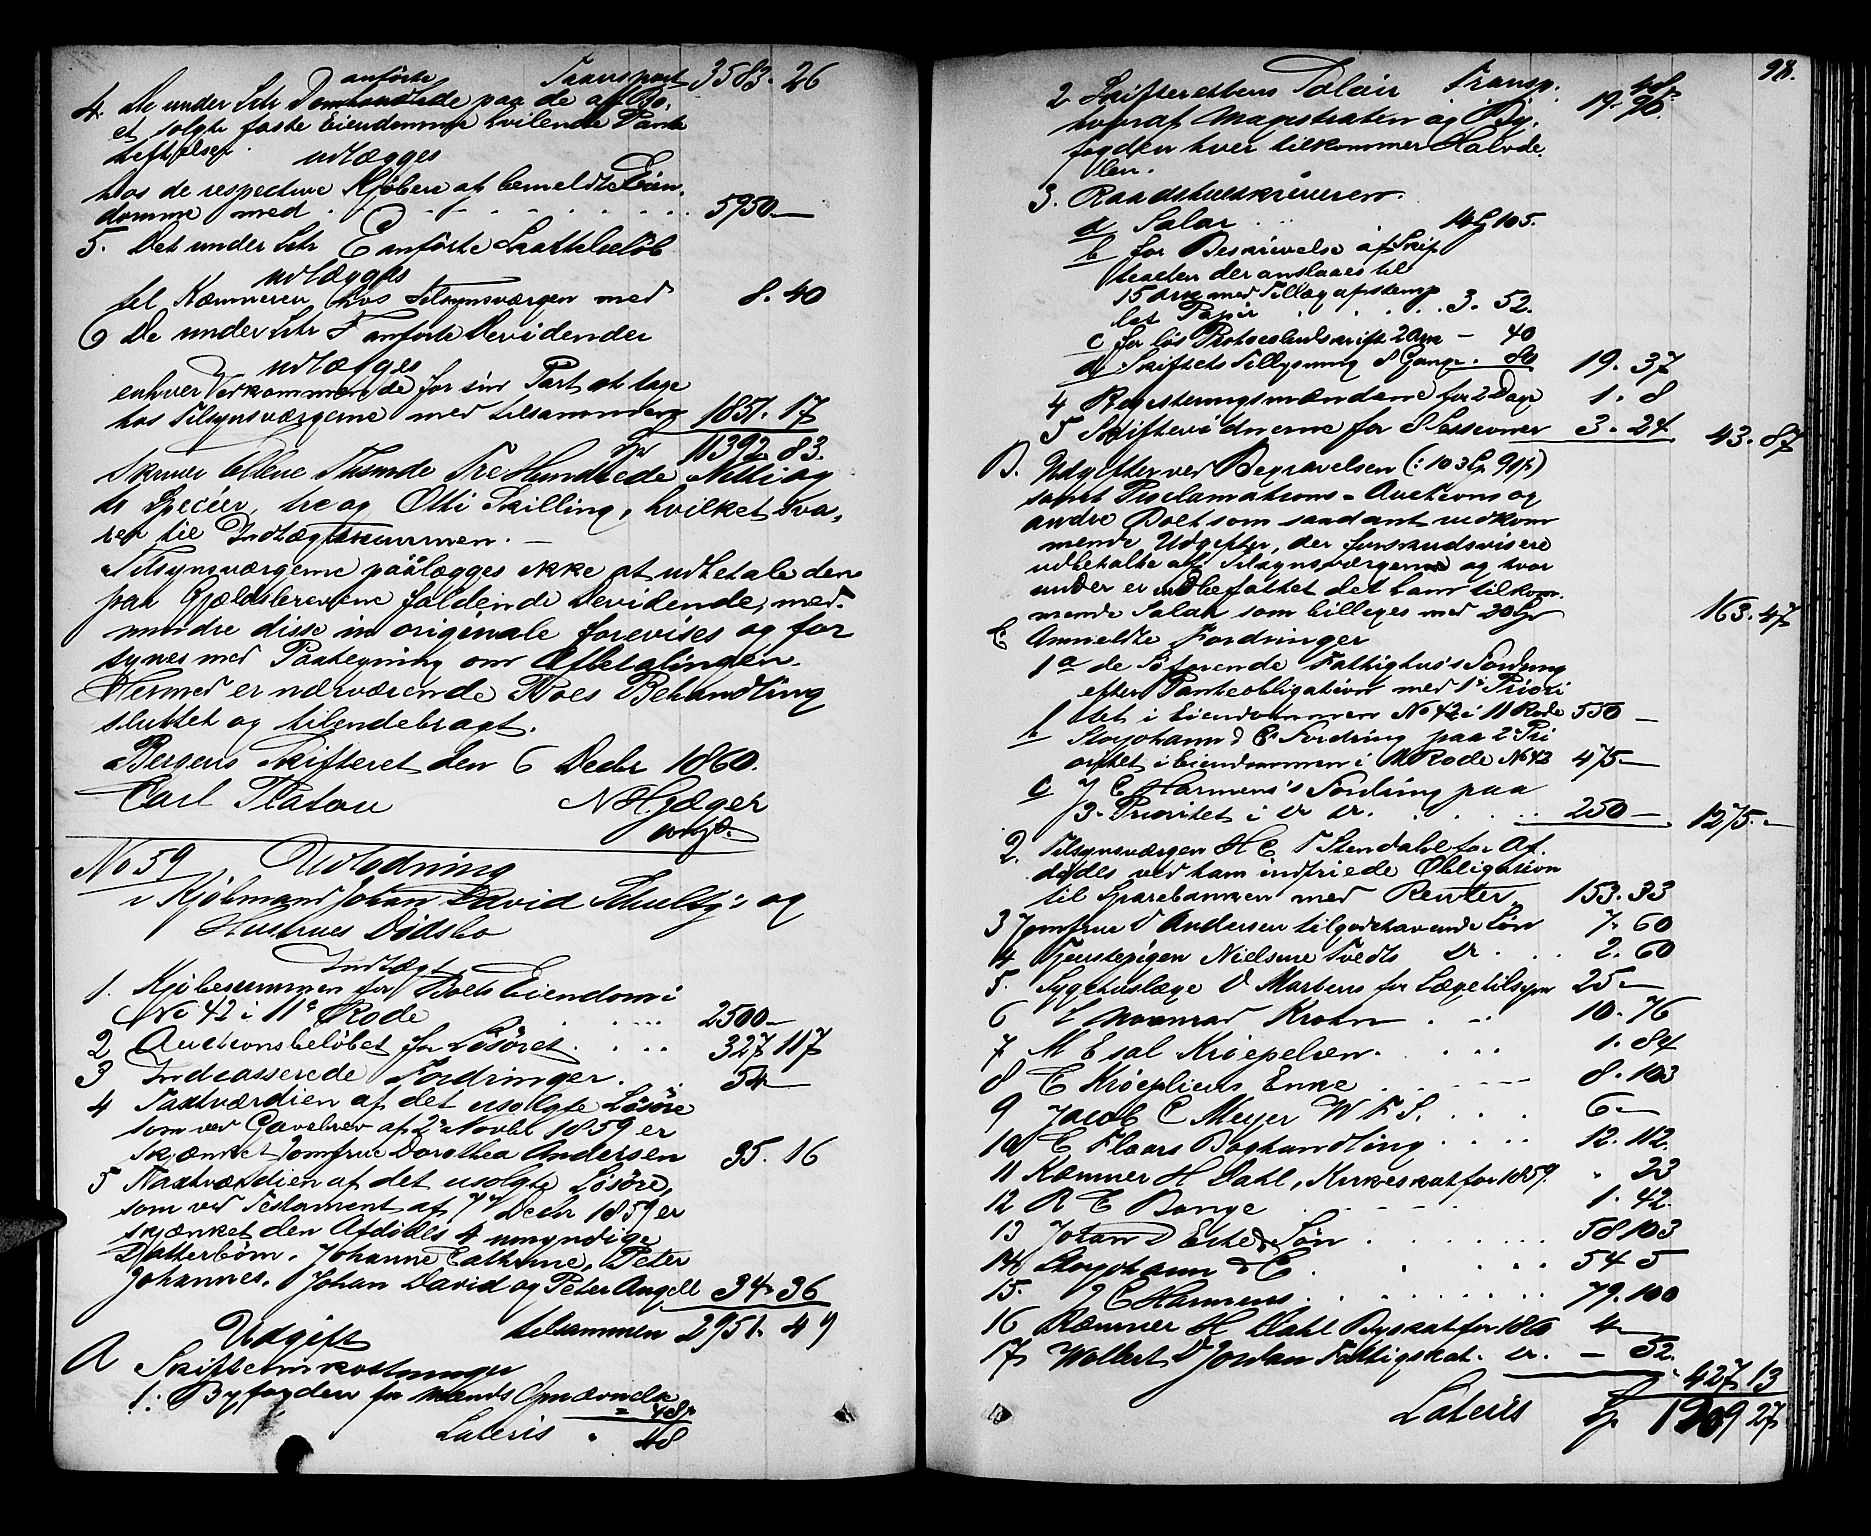 anførte Transport 3583. 26
4. De under Litr D omhandlede paa de af Bo,
et solgte faste Eiendomme hvilende Pante
heftelser
udlægges
hos de respective Kjøbere af bemeldte Eien,
domme med . . . . . 5950 —
5. Det under Litr E anførte Skattebeløb
udlægges
til Kæmneren hos Tilsynsværgen med 8. 40
6 De under Litr F anførte Devidender
udlægges
enhver Vedkommende for sin Part at tage
hos Tilsynsværgerne med tilsammen 1851. 17
Sp 11392. 83.
skriver Elleve Tusinde Tre Hundrede Nitti og
to Specier, tre og Otti Skilling, hvilket sva,
rer til Indtægtssummen. —
Tilsynsværgerne paalægges ikke at udbetale den
paa Gjældsbrevene faldende Devidende, med,
mindre disse in originale forevises og for
synes med Paategning om Afbetalingen.
Hermed er nærværende Boes Behandling
sluttet og tilendebragt.
Bergens Skifteret den 6 Decbr 1860.
Carl Platou N H Jæger
No 59 Udlodning
i Kjøbmand Johan David Schultz's og
Hustrues Dødsbo
Indtægt
1. Kjøbesummen for Boets Eiendom i
No 42 i 11e Rode . . . . 2500 —
2 Auctionsbeløbet for Løsøret . . . . 327 117
3 Indcasserede Fordringer . . 54 —
4 Taxtværdien af det usolgte Løsøre
som ved Gavebrev af 2n Novbr 1859 er
skjænket Jomfrue Dorothea Andersen 35. 16
5 Taxtværdien af det usolgte Løsøre,
som ved Testament af 7n Decbr 1859 er
skjænket den Afdødes 4 umyndige
Datterbørn, Johanne Cathrine, Peter
Johannes, Johan David og Peter Angell 34. 36
tilsammen 2951. 49
Udgift
A Skifteomkostninger
1. Byfogden for Mænds Opnævnelse
= 48 s
Lateris " 48
98.
Transp. 48
2 Skifterettens Salair 19. 90.
hvoraf Magistraten og By,
fogden hver tilkommer Halvde,
len.
3. Raadstueskriveren
a Salar . . 14 Sp 105.
b for Beskrivelse af Skif
teacten der anslaaes til
15 Ark med Tillæg af stemp
let Papir . . . . 3. 52.
c for løs Protocoludskrift 2 Ark — 40
d Skiftets Tillysning 8 Gange . 80 19. 37
4 Registeringsmændene for 2 Dage 1. 8
5 Skiftevidnerne for 8 Sessioner 3. 24. 43. 87
B. Udgifter ved Begravelsen (: 103 Sp 99 s)
samt Proclamations- Auctions og
andre Boet som saadant vedkom
mende Udgifter, der forskudsvis ere
udbetalte af Tilsynsværgerne og hvor
under er indbefattet det ham tilkom,
mende Salair som billiges med 20 Sp 163. 47
C Anmeldte Fordringer
1 a de Søfarende Fattighus's Fordring
efter Panteobligation med 1e Priori
tet i Eiendommen No 42 i 11 Rode 550 —
b Storjohann & C Fordring paa 2 Pri
oritet i Eiendommen i 11 Rode No 42 475 —
c J C Harmens's Fordring paa
3. Prioritet i do do. . . . . . 250 — 1275. —
2. Tilsynsværgen H C T Stendahl for Af,
dødes ved ham indfriede Obligation
til Sparebanken med Renter 153. 33
3 Jomfrue D Andersen tilgodehavende Løn 7. 60
4 Tjenstepigen Nielsine Tvedts do . . . 2. 60
5. Sygehuslæge D Martens for Lægetilsyn 25 —
6 Konrad Krohn . . . 10. 76
7 M Esal Krøepelien. . . . . 1. 84
8 C Krøepliens Enke . . . . . 8. 103
9 Jacob C Meyer W F S. . . . . 6 —
10 E Floors Boghandling . . . . 12. 112
11 Kæmner H Dahl, Kirkeskat for 1859. " 23
12 R C Bange . . . . . 1. 42.
13 Johan D Søn . . . . . . . 58 103
14 Storjohann & C . . . . 54 5
15. J C Harmens . . . . . . . 79. 100
16 Kæmner H Dahl Byskat for 1860 4 —
17 Wollert D Jordan Fattigskat. do. — 52.
427 13
Lateris Sp 1909 27